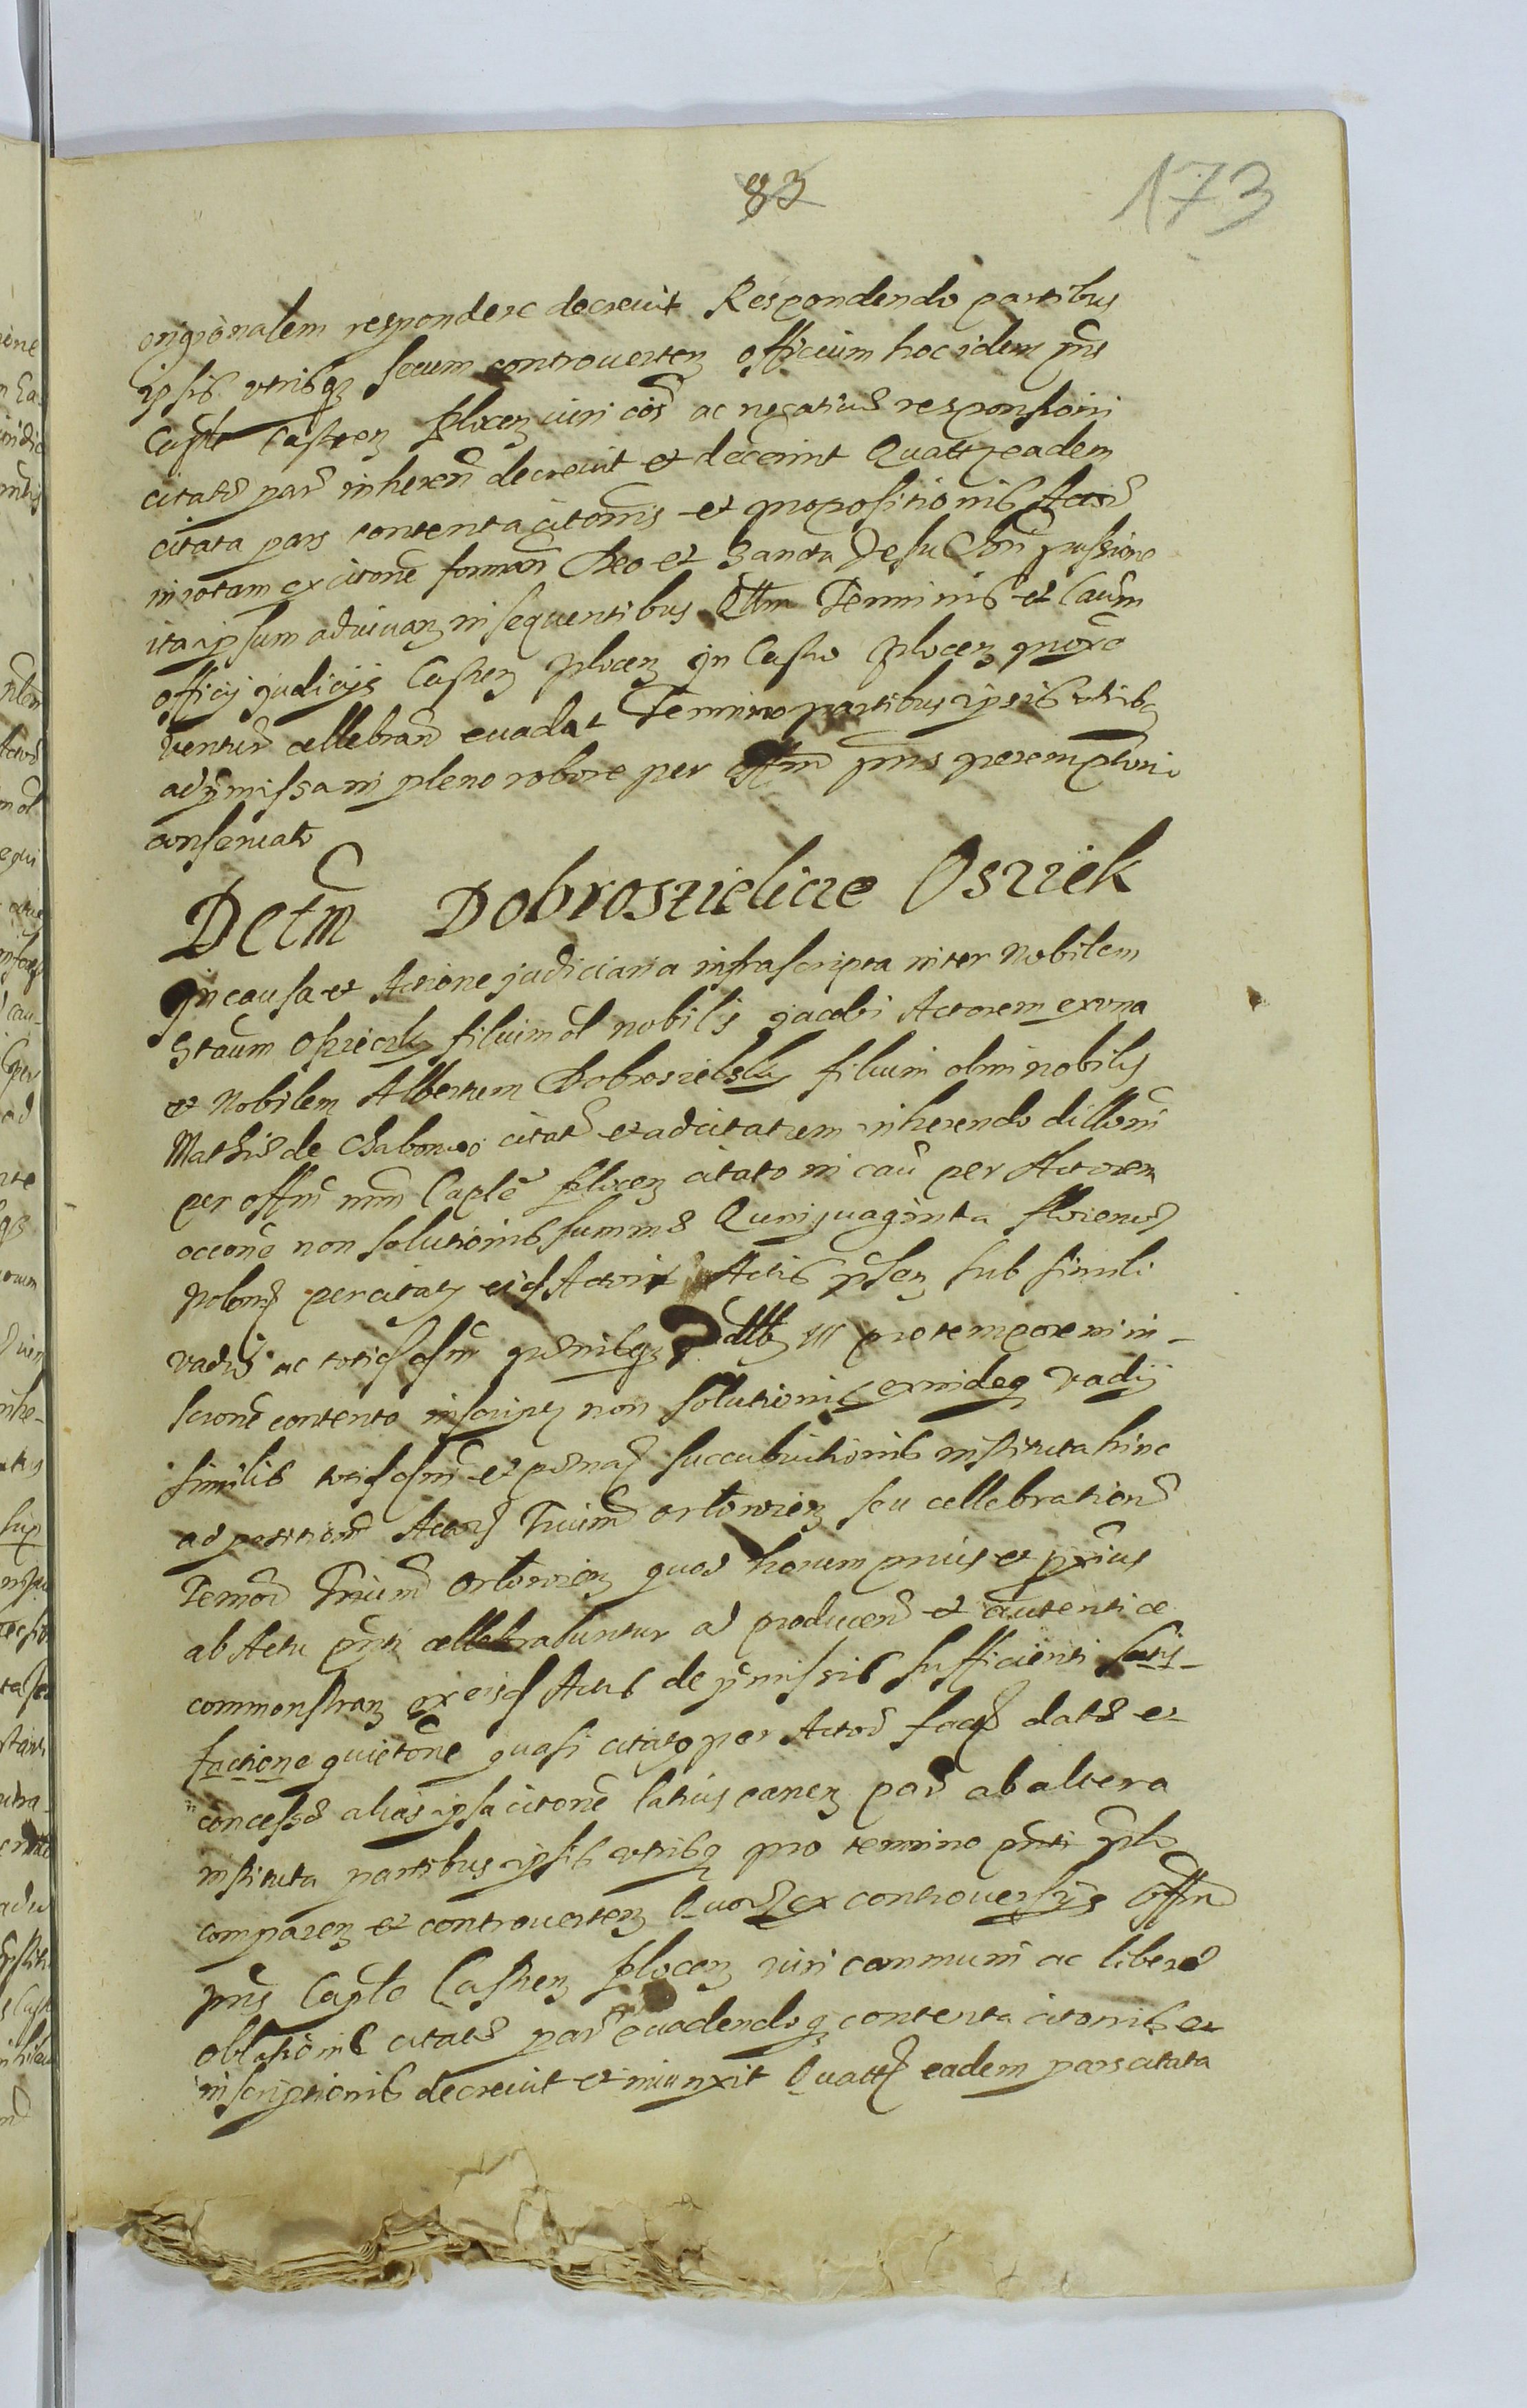 83
173
originalem respondere decrevit Respondendo partibus
ipsis utrisq secum controverten officium hoc idem pns
Captle Castren plocen iuri coi ac negativae responsioni
citatae par inheren decrevit et decernit Quatt eadem
citata pars contenta citonis et propositionis Actor
in rotam ex citone forman Deo et Sancta Jesu Chri passione
ita ipsum adiuvan in sequentibus Terminis et Caum
officij judicijs Castren plocen in Castro plocen prox
ventur cellebran evadat Termino partibus ipsis utrisq
ad pmissa in pleno robore per offm pns peremptorio
conservato
Dctm Dobrosielicze Osziek
In causa et Actione judiciaria infrascripta inter Nobilem
Staum Osziecky filium ol nobilis jacobi Actorem ex una
et Nobilem Albertum Dobrosielsky filium olim nobilis
Mathiae de citat et ad citatum inherendo dilloni
per offm Captle plocen citato in cau per Actorem
occone non solutionis summae Quinquaginta florenor
polon per citat eid Actori Actis psen sub simili
vadio ac pro tempore in in-
scrone contento inscript non solutionis exindeq vadij
similis et paenar succubuitionis instituta hinc
ad petition Actor Trium seu cellebrationem
Termor Trium quor horum prius et prius
ab Actu pnti cellebrabuntur ad producen et autentice
commonstran ex eisd Actis de pmissis sufficienti satis-
factione quietone quasi citato per Actor fact datae et
concessae alias ipsa citone latius canen par ab altera
instituta partibus ipsis utrisq pro termino pnti
comparen et controverten Quor ex controversijs Offm
pns Captle Castren plocen iuri communi ac liberae
oblationis citatae par evadendoq contenta citonis et
inscriptionis decrevit et iniunxit Quatt eadem pars citata